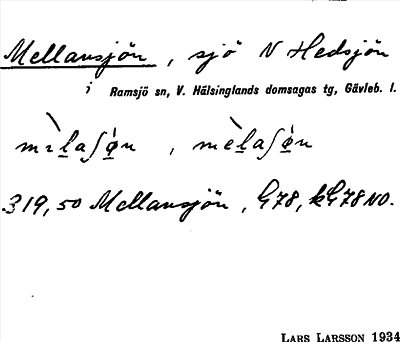 Mellansjön, sjö N Hedsjön
i Ramsjö sn, V. Hälsinglands domsagas tg, Gävleb. l.
319,50 Mellansjön, G78, kG78 NO.
LARS LARSSON 1934